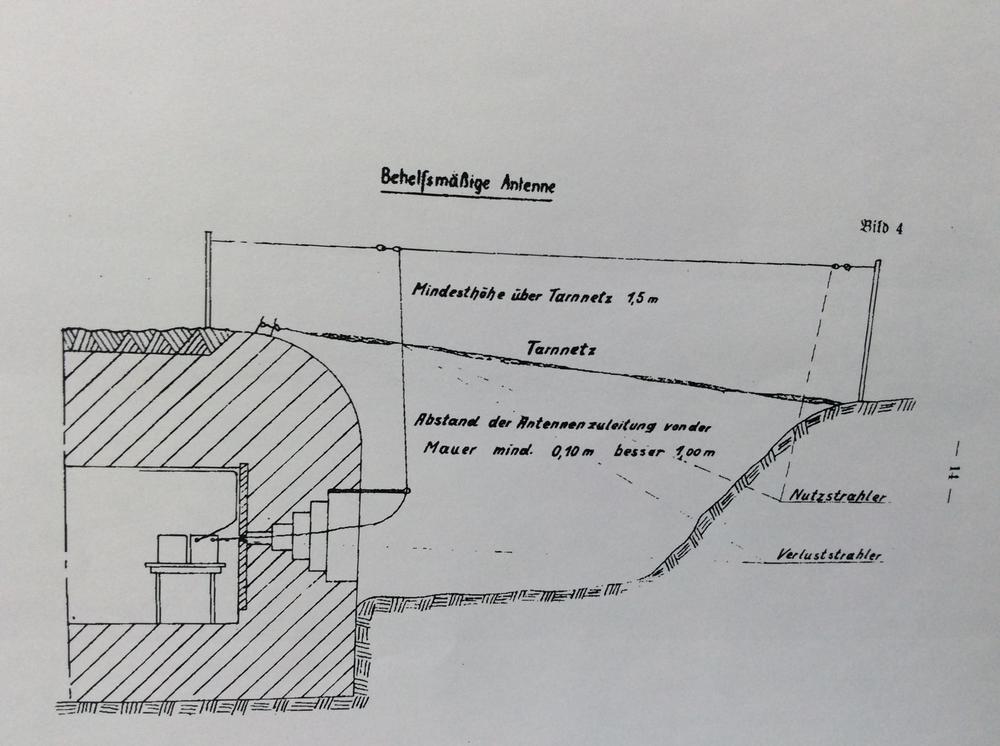 Behelfsmäßige Antenne
Bild 4
Mindesthöhe über Tarnnetz 1,5 m
Tarnnetz
Abstand der Antennenzuleitung von der
Mauer mind. 0,10 m besser 1,00 m
Nutzstrahler
Verluststrahler
— 14 —